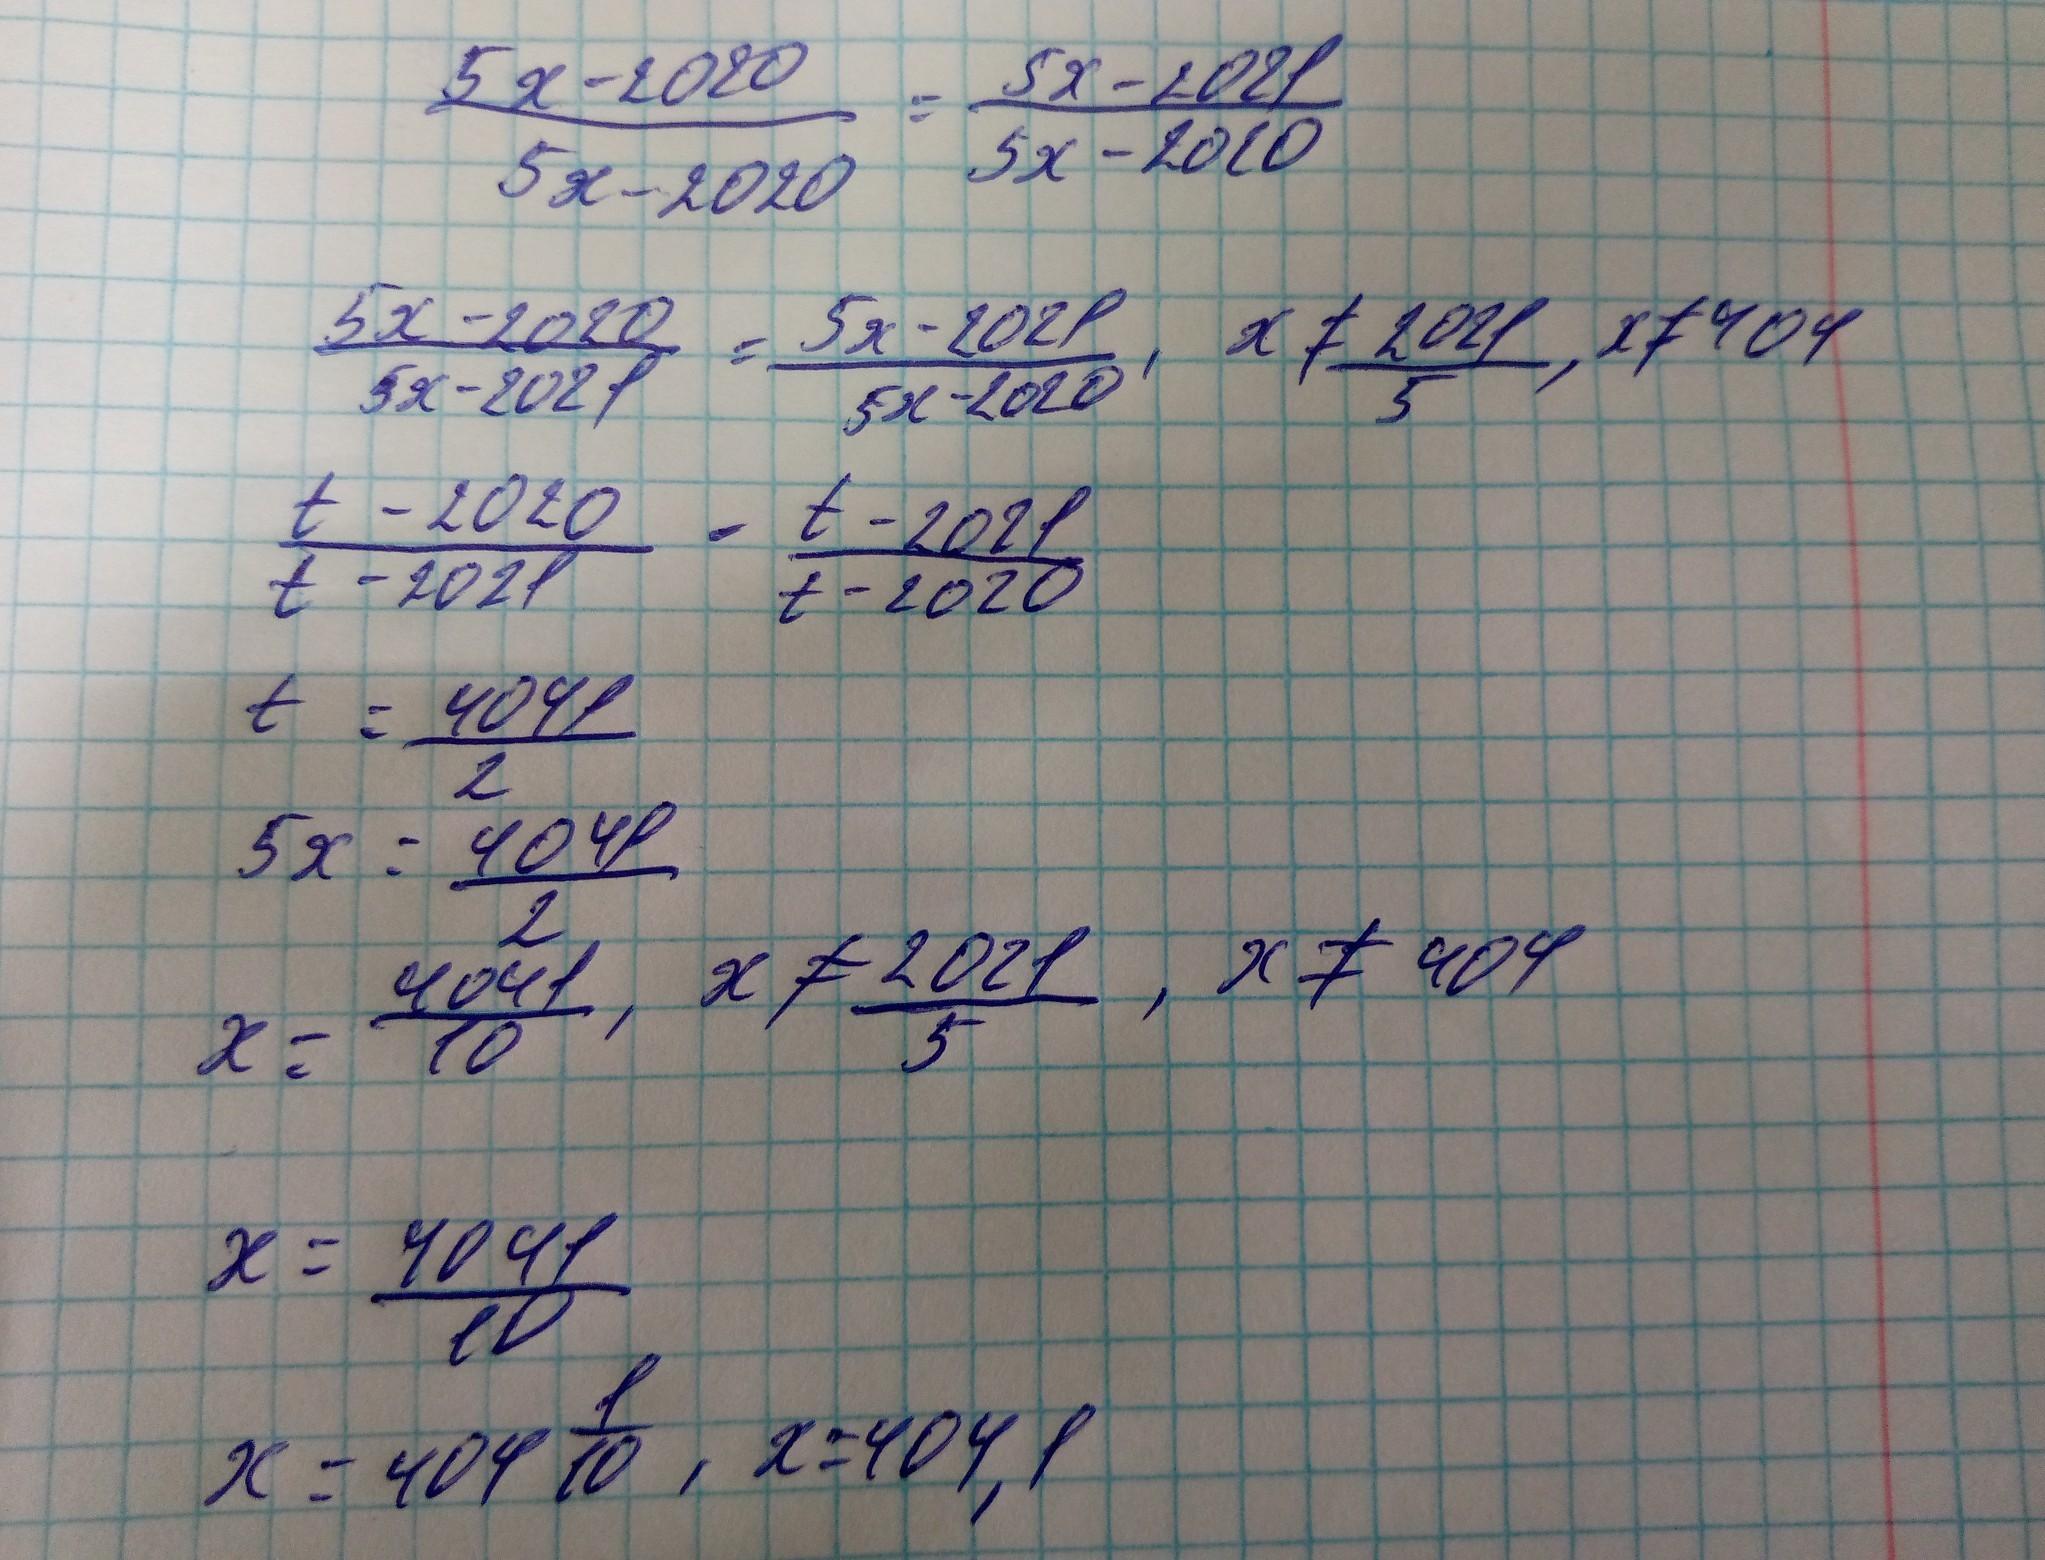 5x-2020/5x-2020 = 5x-2021/5x-2020
5x-2020/5x-2021 = 5x-2021/5x-2020, x≠2021/5, x≠404
t-2020/t-2021 - t-2021/t-2020
t = 4041/2
5x = 4041/2
x = 4041/10, x≠2021/5, x≠404
x = 4041/10
x = 404 1/10, x=404,1